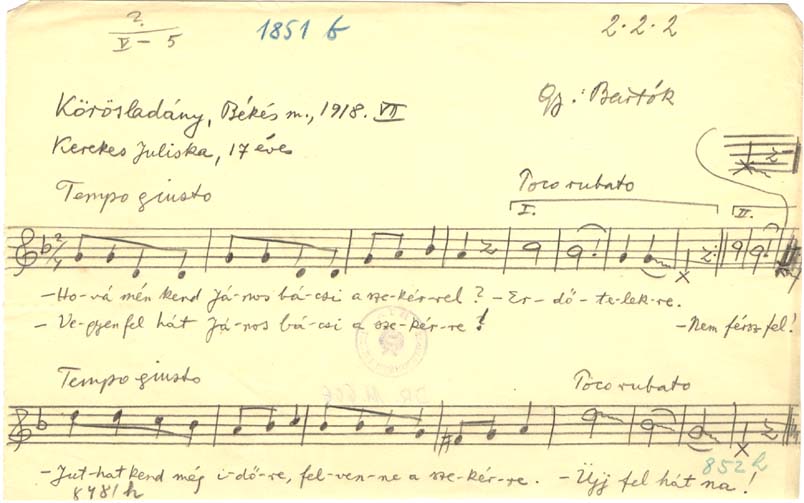 ?
V - 5
1851 b
2·2·2
Körösladány, Békés m., 1918. VII
Gy.: Bartók
Kerekes Juliska, 17 éves
Tempo giusto
Poco rubato
I. II.
2/4
-Ho-vá mén kend Já-nos bá-csi a sze-kér-rel? - Er-dő-te-lek-re.
- Ve-gyen fel hát Já-nos bá-csi a sze-kér-re! -Nem férsz fel!
Tempo giusto
Poco rubato
-Jut-hat kend még i-dő-re, fel-ven-ne a sze-kér-re. -Üjj fel hát na!
852 h